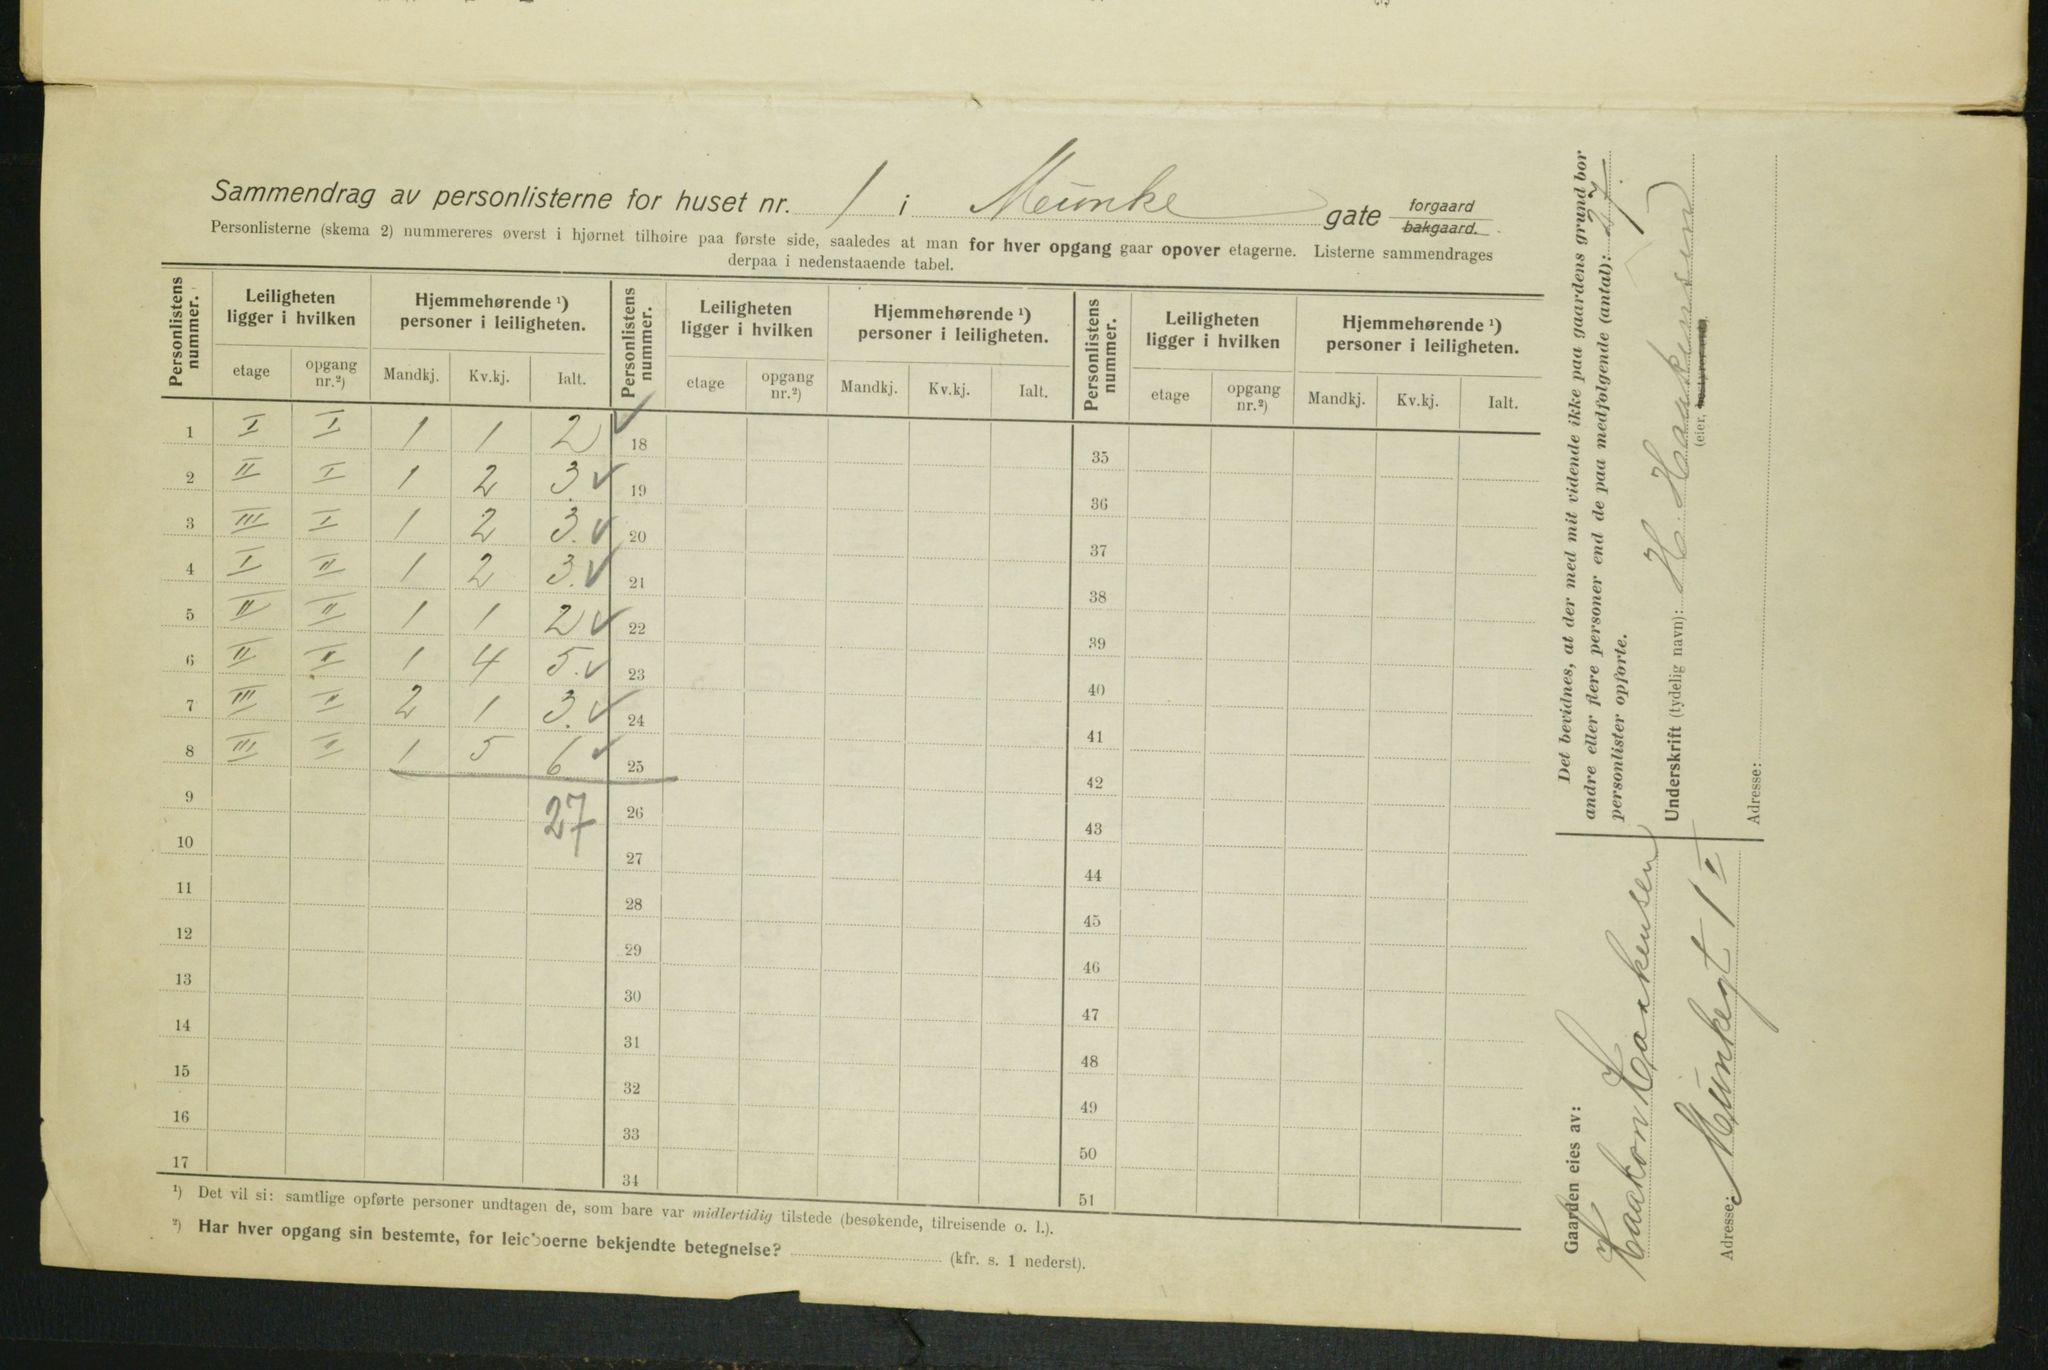 Sammendrag av personlisterne for huset nr. 1 i Munke gate forgaard bakgaard.
Personlisterne (skema 2) nummereres øverst i hjørnet tilhøire paa første side, saaledes at man for hver opgang gaar opover etagerne. Listerne sammendrages
derpaa i nedenstaaende tabel.
Personlistens nummer. Leiligheten ligger i hvilken Hjemmehørende ¹) personer i leiligheten. Personlistens nummer. Leiligheten ligger i hvilken Hjemmehørende ¹) personer i leiligheten. Personlistens nummer. Leiligheten ligger i hvilken Hjemmehørende ¹) personer i leiligheten.
etage opgang nr.²) Mandkj. Kv.kj. Ialt. etage opgang nr.²) Mandkj. Kv.kj. Ialt. etage opgang nr.²) Mandkj. Kv.kj. Ialt.
1 I I 1 1 2 ✓ 18 35
2 II I 1 2 3. ✓ 19 36
3 III I 1 2 3. ✓ 20 37
4 I II 1 2 3. ✓ 21 38
5 II II 1 1 2 ✓ 22 39
6 II II 1 4 5. ✓ 23 40
7 III II 2 1 3. ✓ 24 41
8 III II 1 5 6 ✓ 25 42
9 27 26 43
10 27 44
11 28 45
12 29 46
13 30 47
14 31 48
15 32 49
16 33 50
17 34 51
¹) Det vil si: samtlige opførte personer undtagen de, som bare var midlertidig tilstede (besøkende, tilreisende o. l.).
²) Har hver opgang sin bestemte, for leieboerne bekjendte betegnelse? (kfr. s. 1 nederst).
Gaarden eies av:
Haakon Haakensen
Adresse: Munkegt 1 I
Det bevidnes, at der med mit vidende ikke paa gaardens grund bor
andre eller flere personer end de paa medfølgende (antal): 27
personlister opførte.
Underskrift (tydelig navn): H. Haakensen
(eier, bestyrer
Adresse: